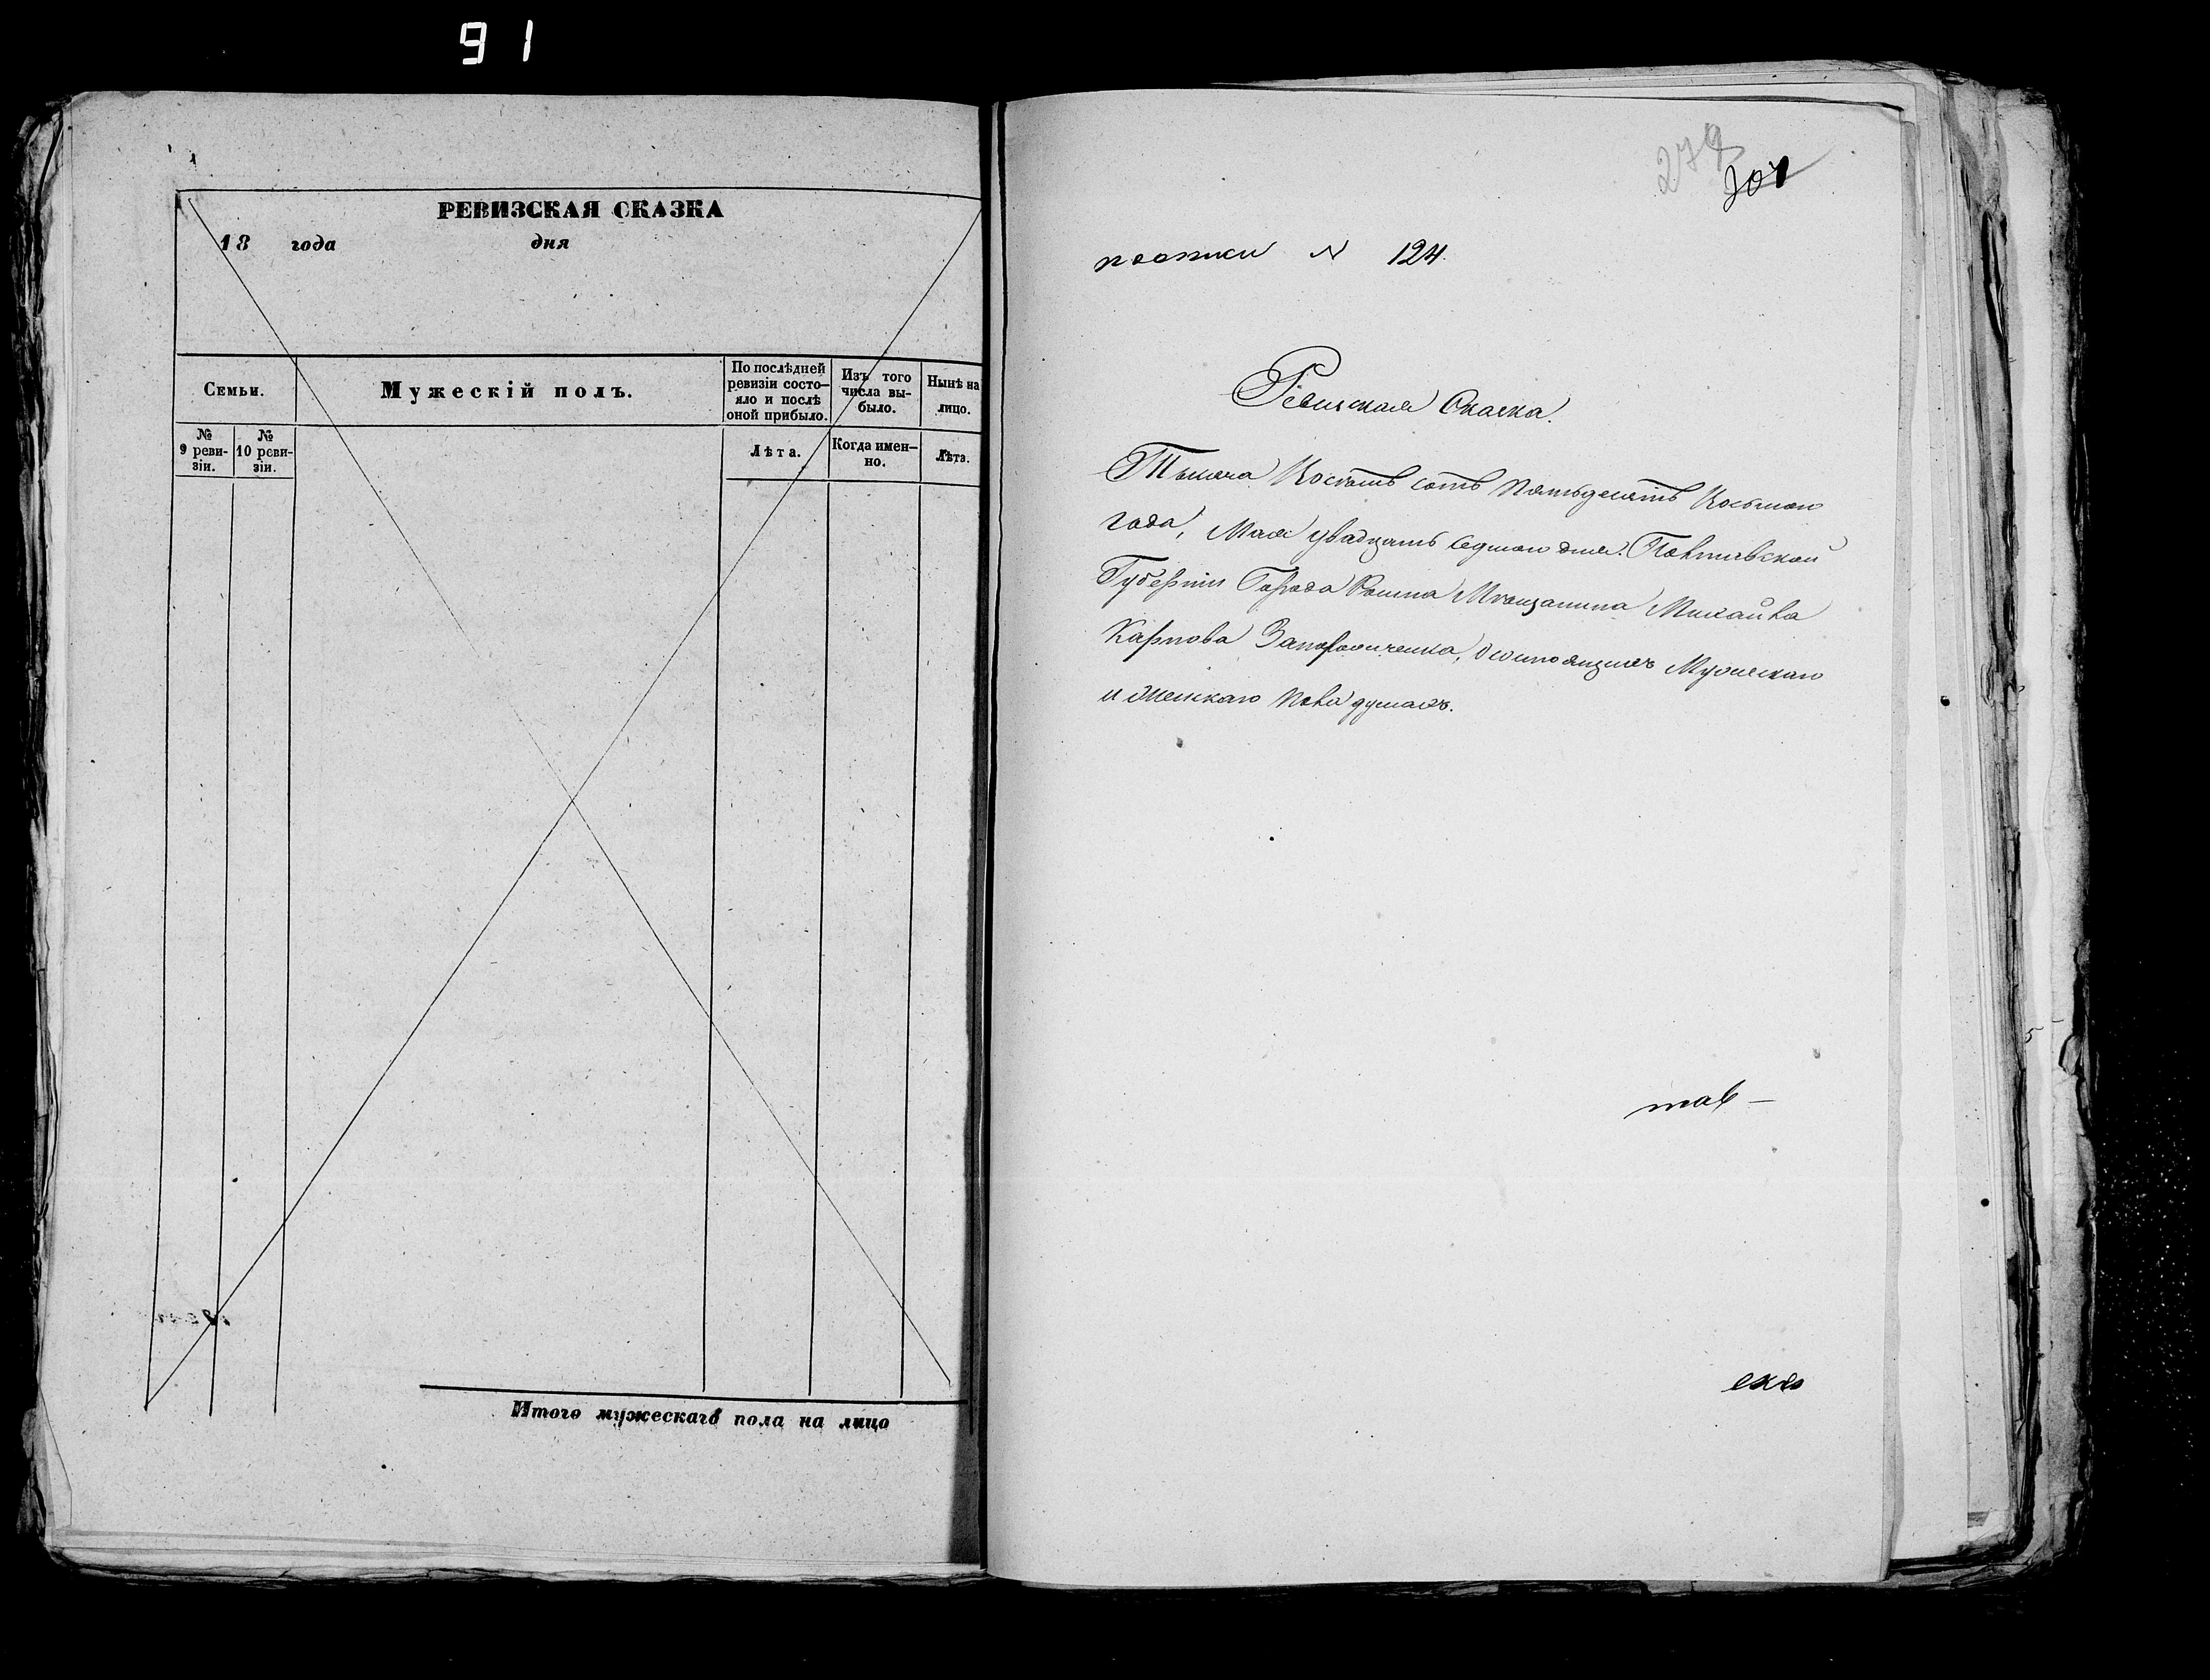 91
РЕВИЗСКАЯ СКАЗКА
18 года дня
Семьи.
Мужескій полъ.
По послѣдней ревизіи состо-
яло и послѣ оной прибыло.
Изъ того числа вы-
было.
Нынѣ на лицо.
№ 9 реви-
зіи.
№ 10 реви-
зіи.
Лѣта.
Когда имен-
но.
Лѣта.
Итого мужескаго пола на лицо
279
N 124.
Ревизская Сказка.
Тысяча Восемь сотъ Пятьдесятъ Восьмаго
года, Мая двадцать седмаго дня. Полтавской
Губерніи Города Ромна Мѣщанина Михайла
Карпова Запорожченка, о состоящихъ Мужескаго
и женскаго пола душахъ.
тав-